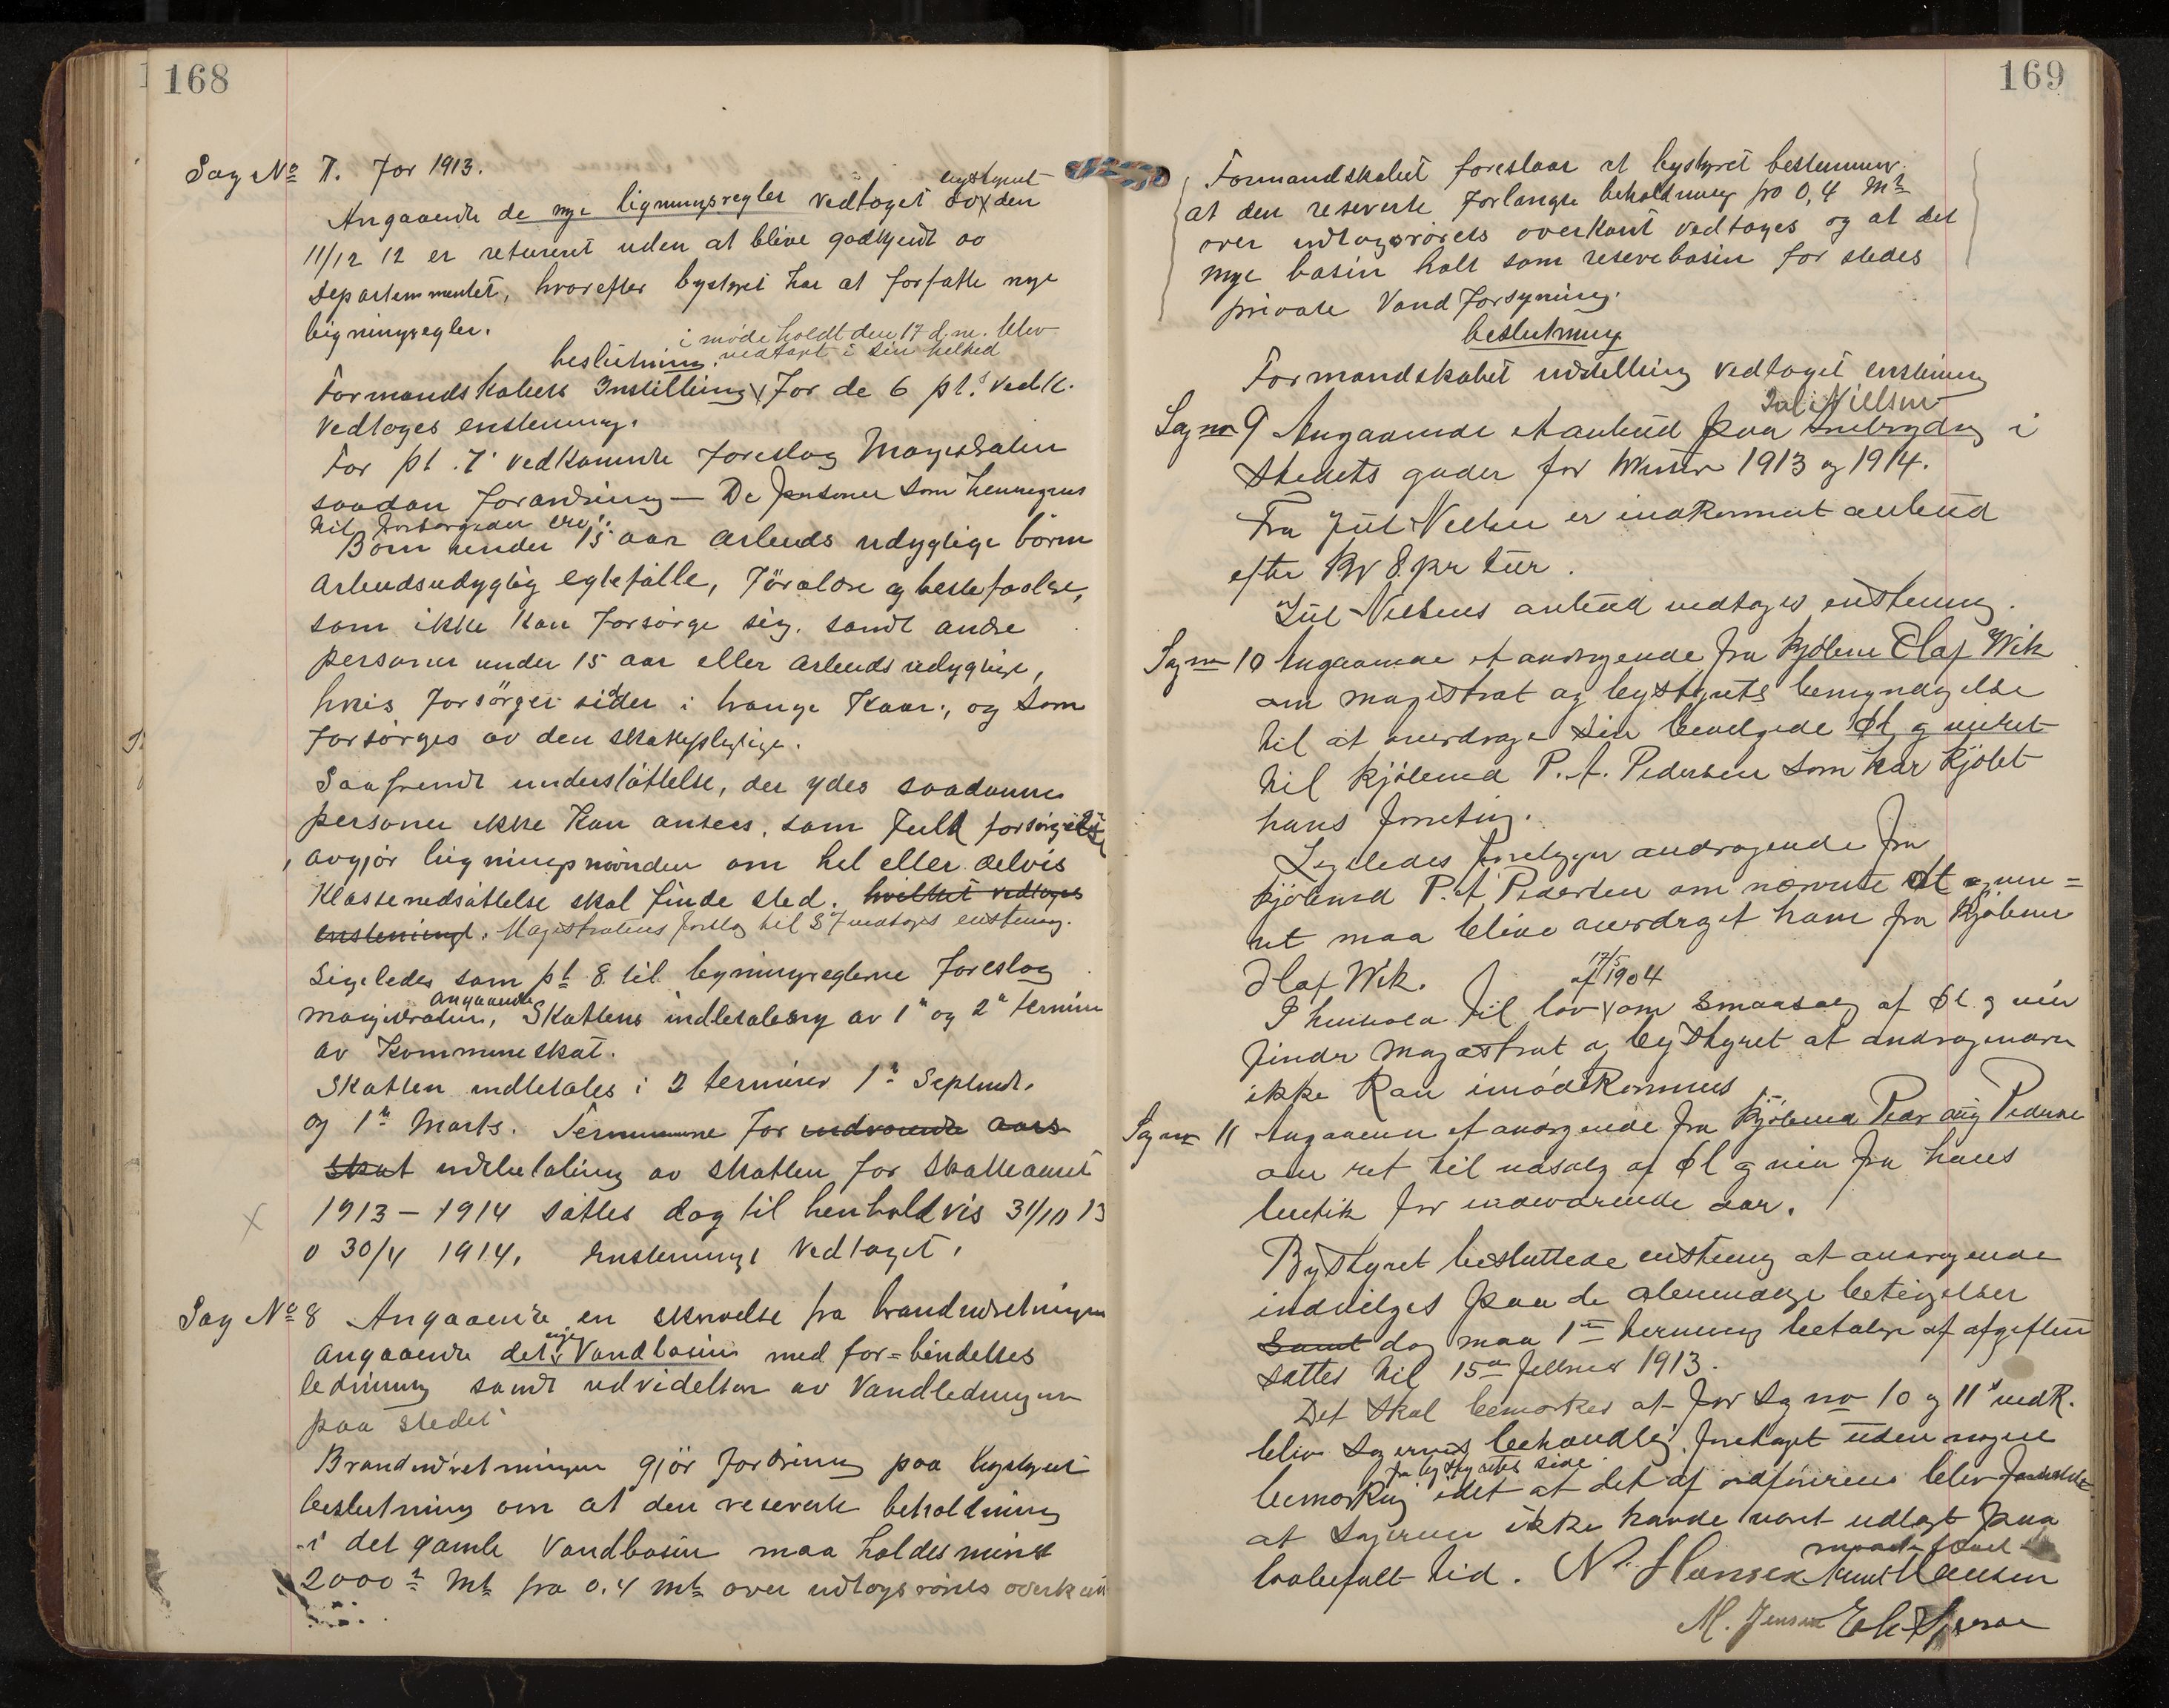 168
Sag No 7. For 1913.
Angaaende de nye ligningsregler vedtaget av bystyret den
11/12 12 er returnert uden at blive godkjendt av
Departementet, hvorefter bystyret har at forfatte nye
ligningsregler.
beslutning. i møde holdt den 17 d.m. blev vedtaget i sin helhed
Formandskabets Instilling for de 6 pt.s vedk.
vedtages enstemmig.
For pt. 7 vedkomende foreslog Magistraten
saadan forandring — De personer som henregnes
til forsørgeden ere:
Børn under 15 aar arbeids udyglige børn
arbeidsudyglig egtefælle, forældre og besteforældre,
som ikke kan forsørge sig, samt andre
personer under 15 aar eller arbeids udyglige,
hvis forsørger sidder i trange kaar, og som
forsørges av den skattepligtige.
Saafremt understøttelse, der ydes saadanne
personer ikke kan ansees, som fuld forsørgelse
avgjør ligningsnævnden om hel eller delvis
Klassenedsættelse skal finde sted. hvilket vedtages
enstemmigt. Magistratens forslag til § 7 vedtages enstemmig.
Ligeledes som pt 8 til ligningsreglerne foreslog
magistraten, angaaende Skattens indbetalesng av 1ste og 2den termin
av Kommuneskat.
Skatten indbetales i 2 terminer 1ste Septembr.
og 1ste Marts. Terminerne for indværende aars
skat indbetaling av skatten for Skatteaaret
1913 – 1914 sættes dog til henholdvis 31/10 13
o 30/4 1914. Enstemmigt vedtaget.
Sag No 8 Angaaende en skrivelse fra brandindretningen
angaaende det nye Vandbasin med for=bindelses
ledning samt udvidelsen av Vandledningen
paa stedet
Brandindretningen gjør fordring paa bystyrets
beslutning om at den reserverte beholdning
i det gamle Vandbasin maa holdes minst
2000 Mt fra 0,4 mt over udtagsrørets overkant
169
Formandskabet foreslaar at bystyret bestemmer
at den reserverte forlangte beholdning fra 0,4 Mt
over udtagsrørets overkant vedtages og at det
nye basin holt som reservebasin for stedes
private Vandforsyning.
beslutning
Formandskabet indstilling vedtaget enstemmig
Sag no 9 Angaaende et anbud fra Jul Nielsen paa snebrydng i
stedets gader for Vinter 1913 og 1914.
Fra Jul Nielsen er indkommet anbud
efter Kr 8 pr tur.
Jul Nielsens anbud vedtages enstemmig.
Sag no 10 Angaaende et andragende fra Kjøbmd Olaf Wik
om magistrat og bystyrets bemyndigelse
til at overdrage sin bevilgede Øl og vinret
til Kjøbmd P. A. Pedersen som har kjøbt
hans forretning.
Ligeledes foreligger andragende fra
Kjøbmd P. A. Pedersen om nævnte Øl og vin=
ret maa blive overdraget ham fra Kjøbmd
Olaf Wik.
I henhold til lov af 17/5 1904 om smaasalg af Øl og vin
finder magistrat og bystyret at andragendern
ikke kan imødekommes
Sag no 11 Angaaende et andragende fra Kjøbmd Pedr Aug Pedersen
om ret til udsalg af Øl og vin fra hans
butik for indeværende aar.
Bystyret besluttede enstemig at andragende
indvilges paa de almindelige betingelser
Samt dog maa 1ste termins betaling af afgiften
sættes til 15de Februar 1913.
Det skal bemærkes at for sag no 10 og 11s vedk.
blev sagernes behandling foretaget uden nogen
bemærkning fra bystyrets side idet at det af ordføreren blev
at sagerne ikke havde været udlagt paa
lovbefalt tid. N. Hansen Knut Hansen
M. Jensen